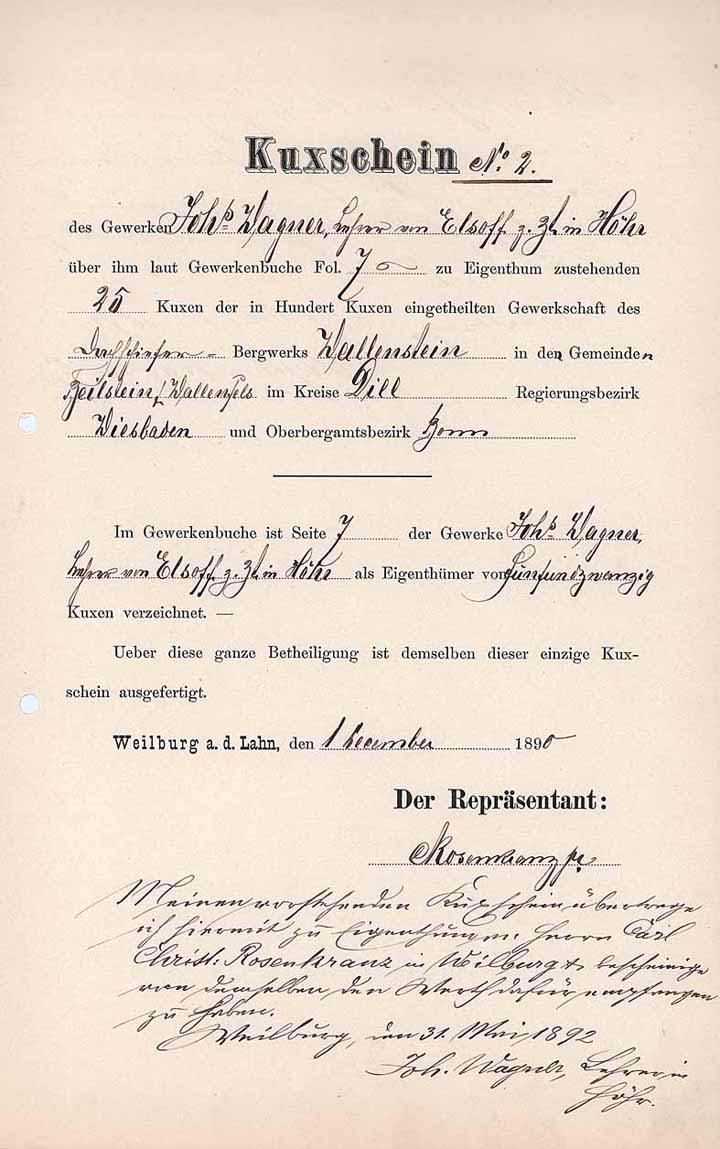 Kuxschein No. 2.
des Gewerken Johs. Wagner, Lehrer von Elsoff z. Zt. in Höhr
über ihm laut Gewerkenbuche Fol. 7 zu Eigenthum zustehenden
25 Kuxen der in Hundert Kuxen eingetheilten Gewerkschaft des
Dachschiefer- Bergwerks Wallenstein in den Gemeinden
Beilstein, Wallenfels im Kreise Dill Regierungsbezirk
Wiesbaden und Oberbergamtsbezirk Bonn
Im Gewerkenbuche ist Seite 7 der Gewerke Johs. Wagner,
Lehrer von Elsoff z. Zt. in Höhr als Eigenthümer von Fünfundzwanzig
Kuxen verzeichnet. —
Ueber diese ganze Betheiligung ist demselben dieser einzige Kux-
schein ausgefertigt.
Weilburg a. d. Lahn, den 1 December 1890
Der Repräsentant:
Rosenkranz jr
Meinen vorstehenden Kuxschein übertrage
ich hiermit zu Eigenthum Herrn Carl
Christ: Rosenkranz in Weilburg & bescheinige
von demselben den Werth dafür empfangen
zu haben.
Weilburg, den 31. Mai 1892
Joh. Wagner, Lehrer in
Höhr.